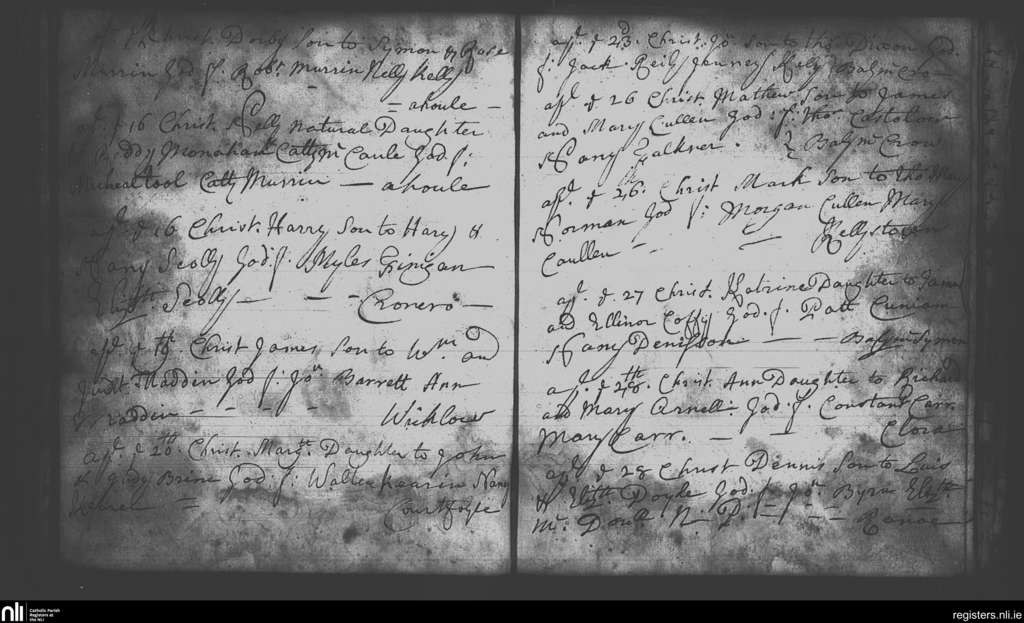 Christ. Darby Son to Symon & Rose
Murrin God f. Robt. Murrin Nelly Kelly
— ahoule —
16 Christ. Nelly Natural Daughter
Monahan Catty Mc Caule God. f:
Micheal tool Catty Murrin — ahoule
apl. ye 16 Christ. Harry Son to Hary &
Nany Scolly God: f. Myles Finigan
Elizth. Scolly — — — Cronero —
apl. ye 18th Christ James Son to Wm. and
Judt. Maddin God f: Jon. Barrett Ann
Maddin — — — — Wicklow
apl. ye 20th. Christ. Margt. Daughter to John
& Judy Brine God: f: Walter Kearin Nany
Courtfoyle
apl. ye 23d. Christ. Jon. Son to thos. Dixon God.
f: Jack Reily Jenney Reily Balymcro
apl. ye 26 Christ. Mathew Son to James
and Mary Cullen God: f: thos. Castolow
Nany Falkner. Balymc Crow
apl. ye 26th. Christ Mark Son to thos.
Norman God f: Morgan Cullen Mary
Caullen — — Kellystown
apl. ye. 27 Christ. Katrine Daughter to James
and Ellinor Coffy God. f. Patt Cuniam
Nany Denifson — — — Balymcsymon
apl. ye 28th. Christ. Ann Daughter to Richard
and Mary Arnell: God. f. Constant Carr
Mary Carr. — — Clora
apl. ye 28 Christ Dennis Son to Luis
& Elizth. Doyle God. f. Jon. Byrn Elizth.
Mc. Donll. N. P. — — — Ranae
nli
Catholic Parish
Registers at
the NLI
registers.nli.ie